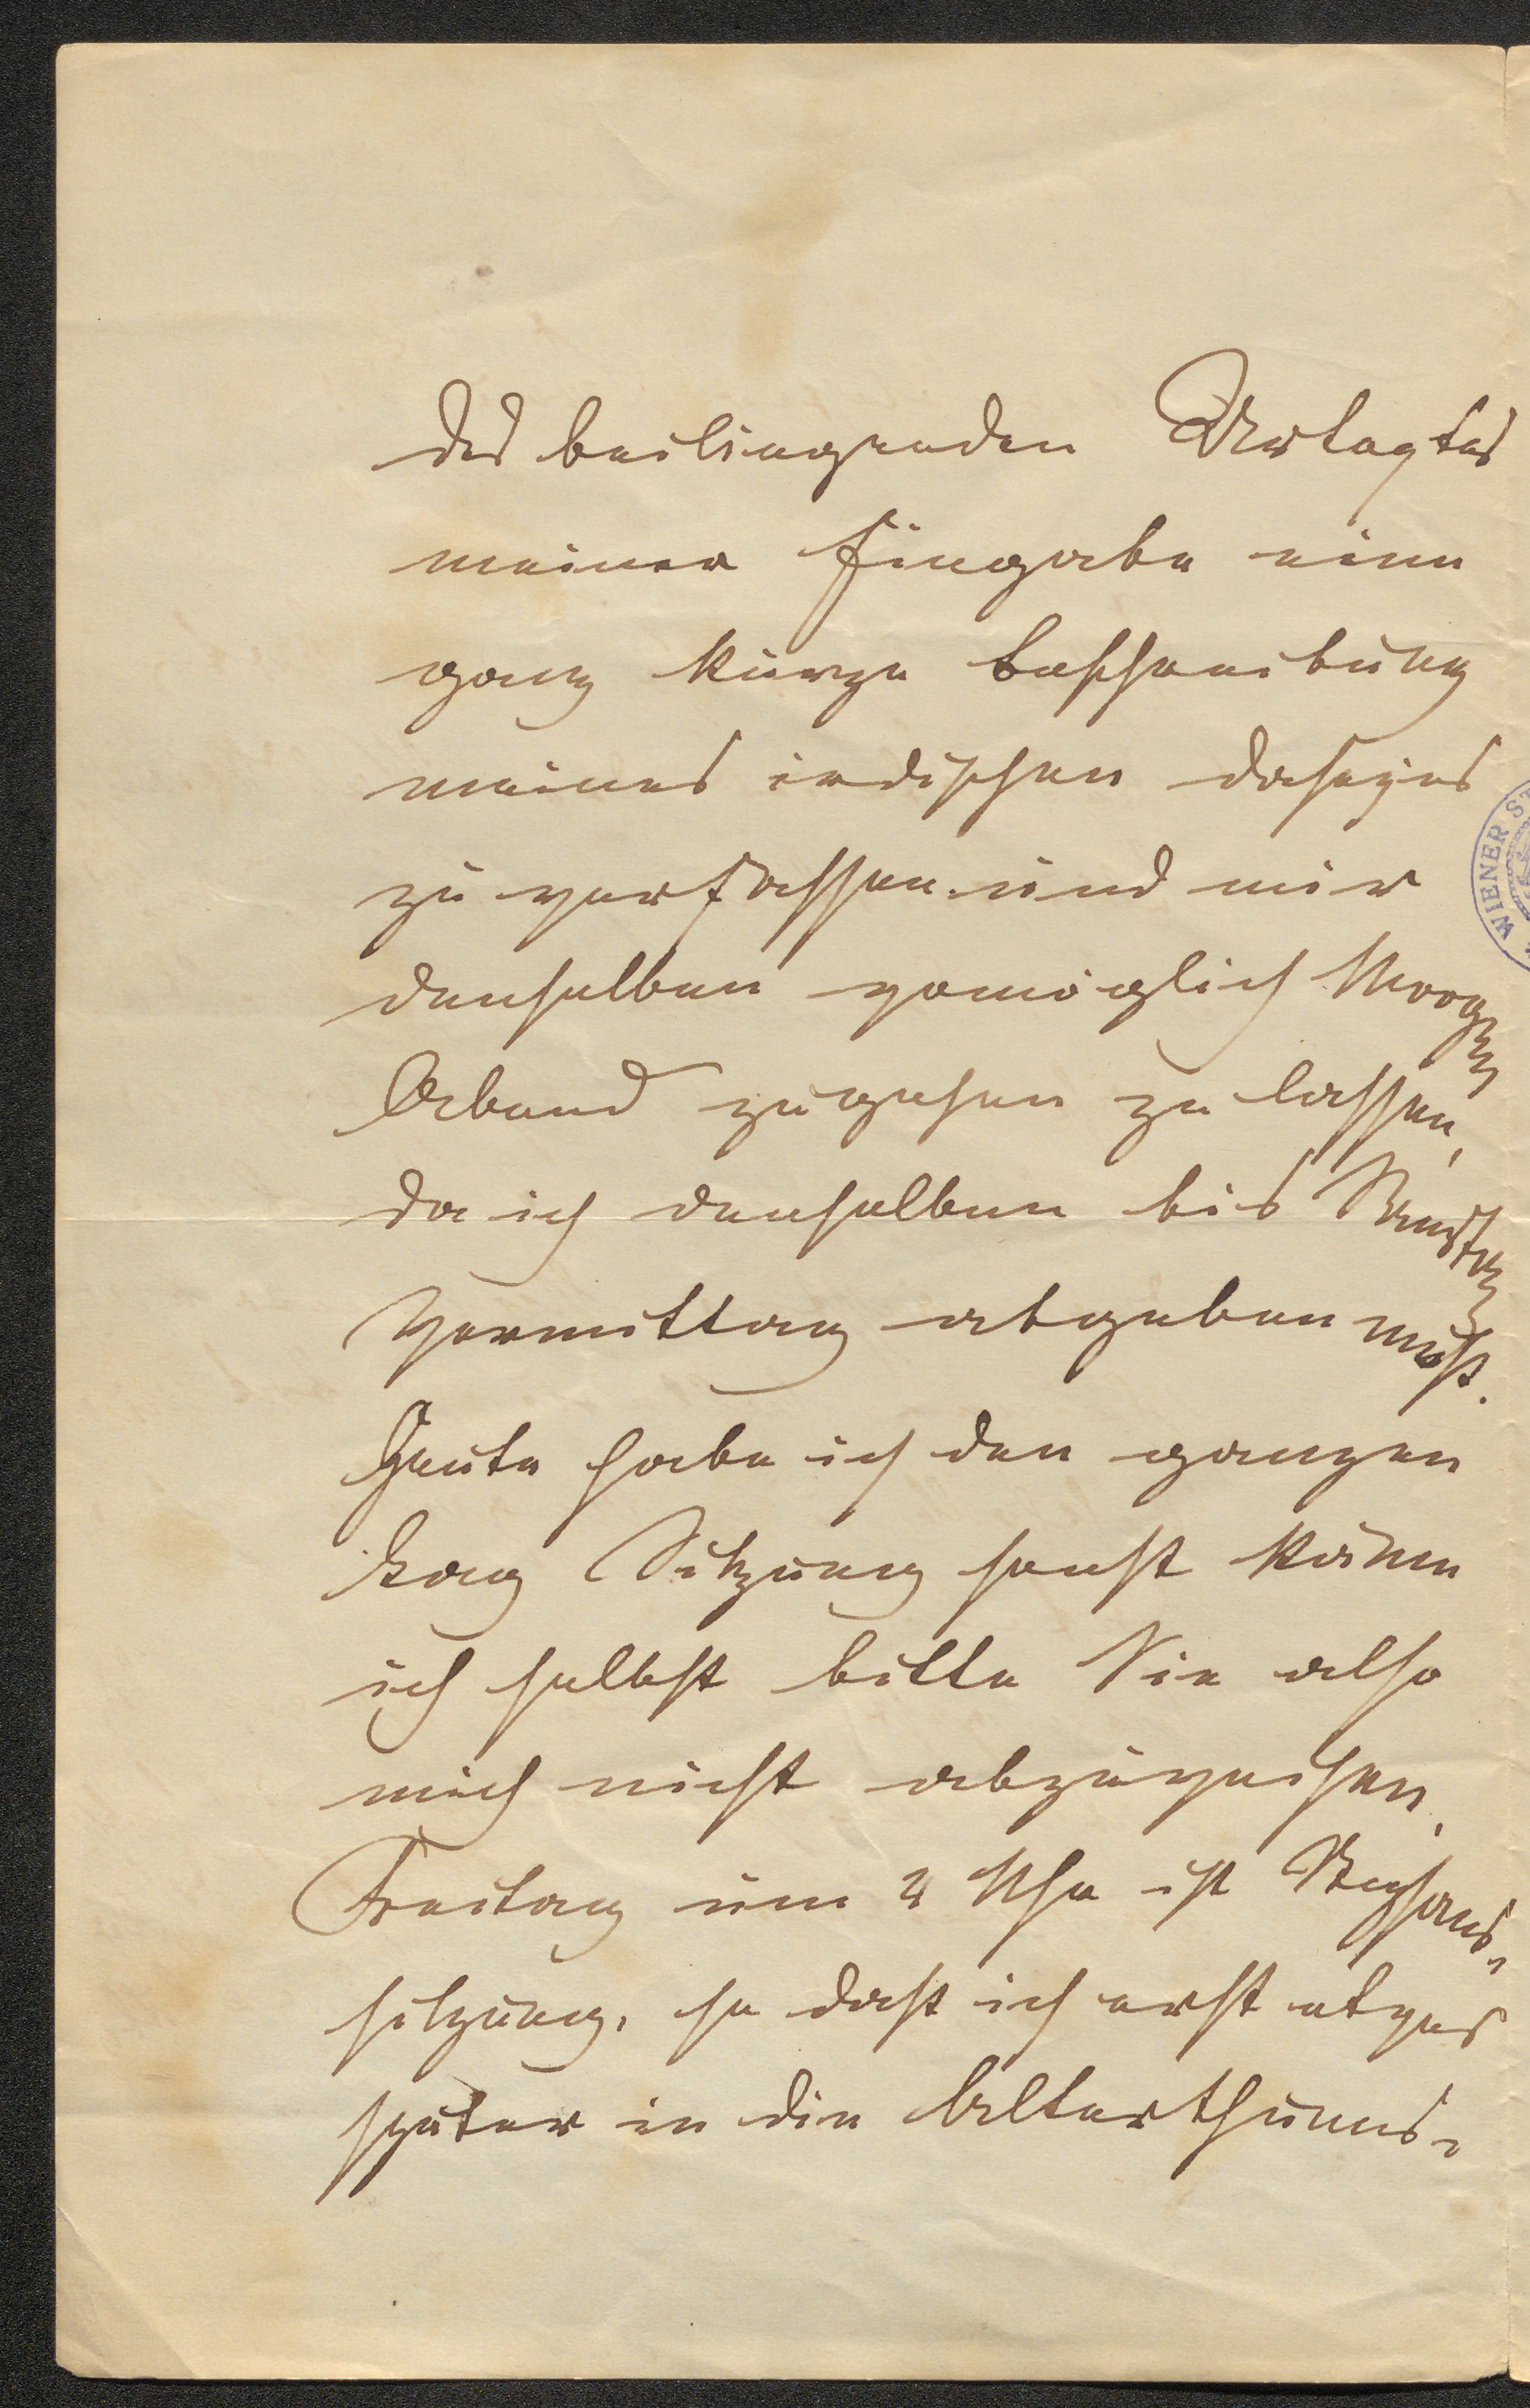 des beiliegenden Urtextes
meiner Eingabe eine
ganz kurze Beschreibung
meines irdischen Daseins
zu verfassen und mir
denselben womöglich Morgen
Abend zugehen zu lassen,
da ich denselben bis Samstag
Vormittag abgeben muß.
Heute habe ich den ganzen
Tag Sitzung sonst käme
ich selbst bitte Sie also
mich nicht abzuweisen.
Freitag um 4 Uhr ist
sitzung, so daß ich erst etwas
später in die Alterthums-
WIENER ST